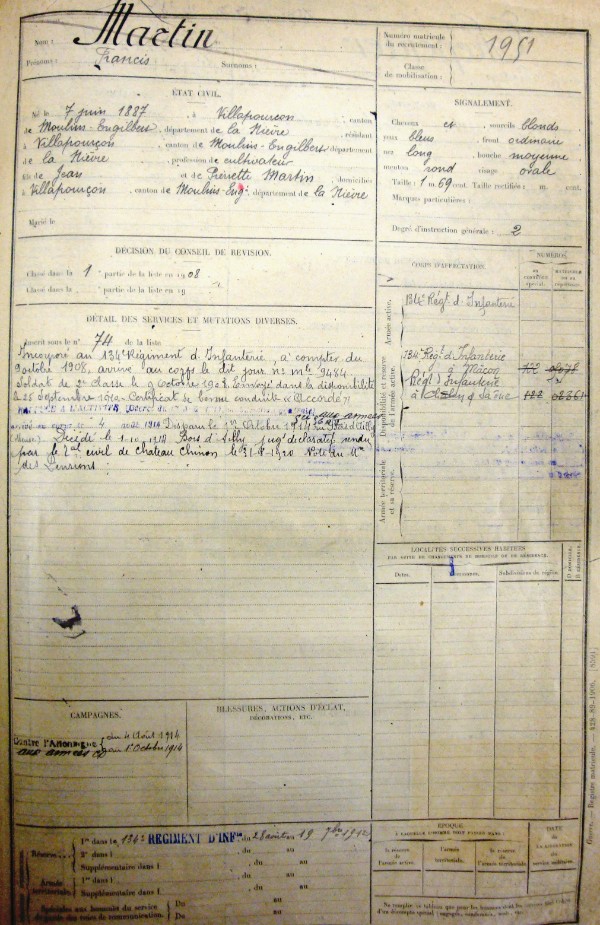 Nom : Martin
Prénoms : Francis Surnoms :
Numéro matricule du recrutement : 1951
Classe de mobilisation :
ÉTAT CIVIL.
Né le 7 juin 1887, à Villapourçon, canton
de Moulins-Engilbert, département de la Nièvre, résidant
à Villapourçon, canton de Moulins-Engilbert département
de la Nièvre, profession de cultivateur
fils de Jean et de Pierrette Martin, domiciliés
à Villapourçon, canton de Moulins-Eng, département de la Nièvre
Marié le
SIGNALEMENT.
Cheveux et sourcils blonds
yeux bleus, front ordinaire
nez long, bouche moyenne
menton rond visage ovale
Taille : 1 m. 69 cent. Taille rectifiée : m. cent.
Marques particulières :
Degré d'instruction générale : 2
DÉCISION DU CONSEIL DE RÉVISION.
Classé dans la 1 partie de la liste en 1908
Classé dans la partie de la liste en 19
DÉTAIL DES SERVICES ET MUTATIONS DIVERSES.
Inscrit sous le n° 74 de la liste
Incorporé au 134e Régiment d'Infanterie, à compter du
9 octobre 1908, arrivé au corps le dit jour
Soldat de 2e classe le 9 octobre 1908. Envoyé dans la disponibilité
le 25 Septembre 1910. Certificat de bonne conduite "Accordé"
aux armées
4 août 1914 Disparu le 1er Octobre 1914 au Bois d'Ailly
(Meuse). Décédé le 1.10.1914 Bois d'Ailly jugt déclaratif rendu
par le Tal civil de Chateau Chinon
des Pensions.
CORPS D'AFFECTATION.
NUMÉROS
Armée active.
134e Régt d'Infanterie
Disponibilité et réserve de l'armée active.
134e Régt d'Infanterie
à Mâcon 122
Régt d'Infanterie
122
Armée territoriale et sa réserve.
LOCALITÉS SUCCESSIVES HABITÉES
PAR SUITE DE CHANGEMENTS DE DOMICILE OU DE RÉSIDENCE.
Dates. Communes. Subdivisions de région.
CAMPAGNES.
Contre l'Allemagne du 4 Août 1914
aux armées au 1er Octobre 1914
BLESSURES, ACTIONS D'ÉCLAT,
DÉCORATIONS, ETC.
Réserve... 1re dans le 134e RÉGIMENT D'INFie du 28 août au 19 7bre 1912
2e dans l , du au
Supplémentaire dans l , du au
Armée territoriale. 1re dans l , du au
Supplémentaire dans l , du au
Spéciales aux hommes du service Du au
de garde des voies de communication. Du au
ÉPOQUE
À LAQUELLE L'HOMME DOIT PASSER DANS :
la réserve de l'armée active. l'armée territoriale. la réserve de l'armée territoriale.
DATE DE LA LIBÉRATION du service militaire.
Guerre. — Registre matricule.